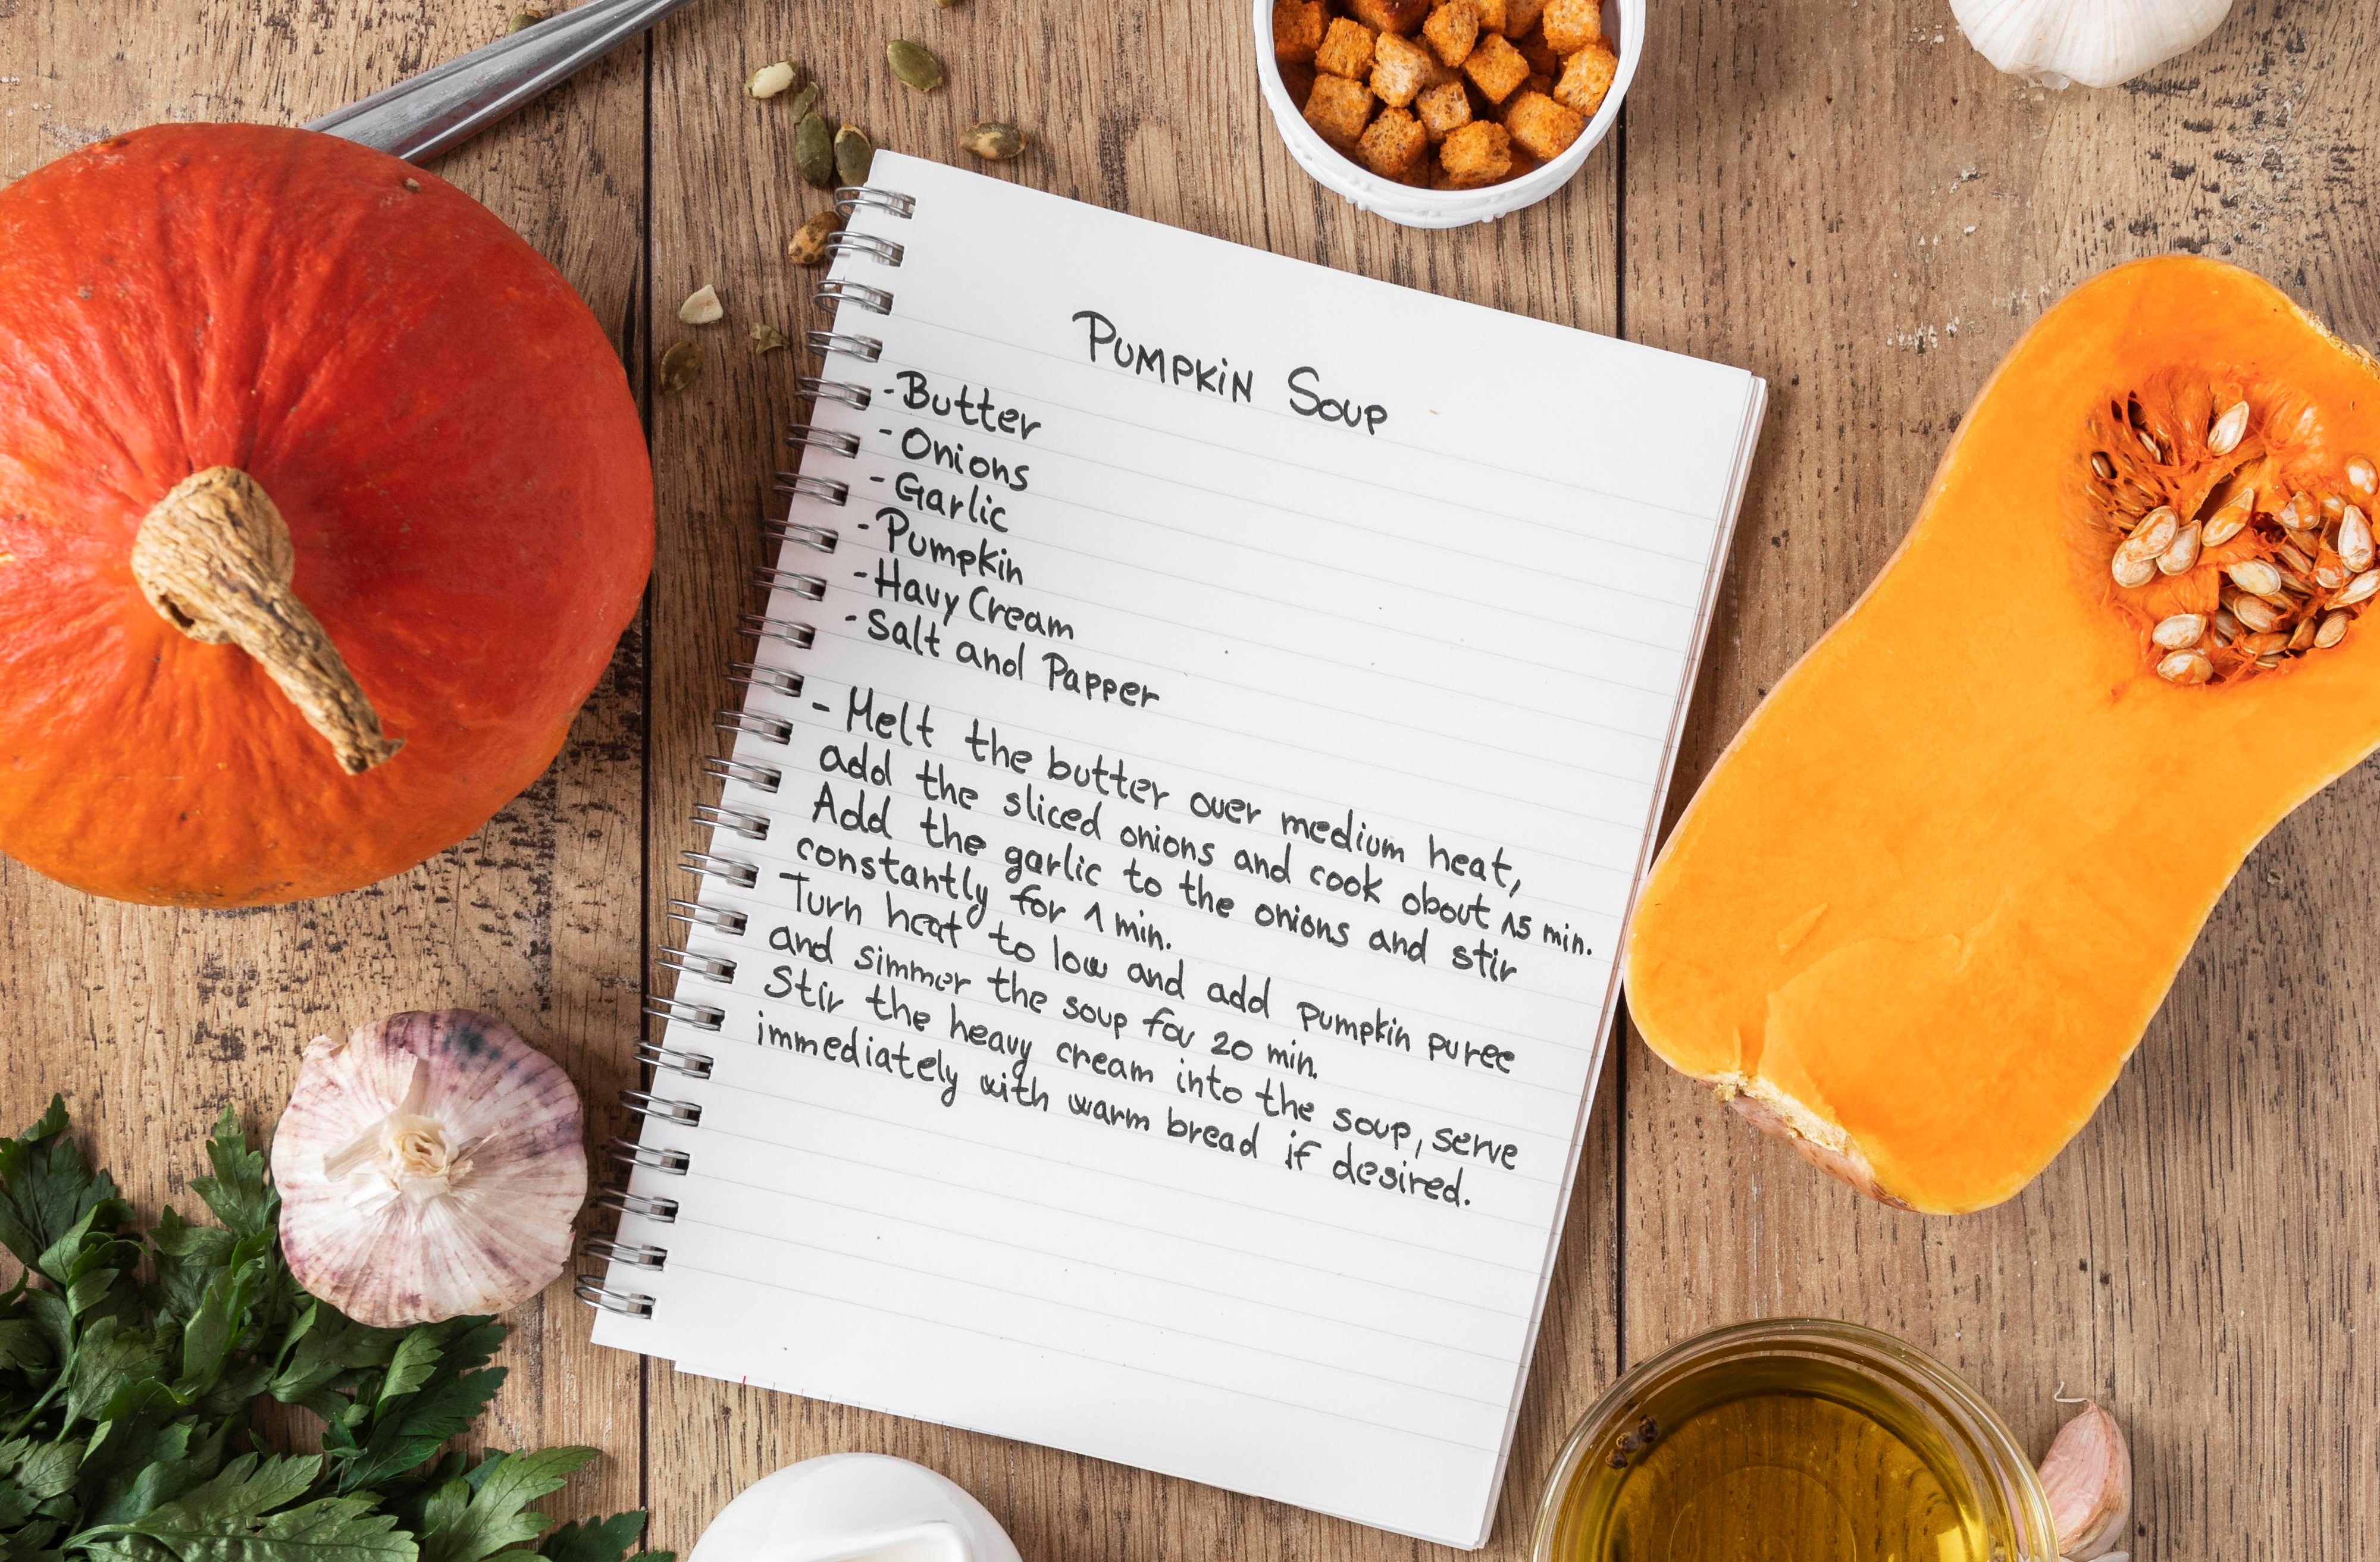 Pumpkin Soup
- Butter
- Onions
- Garlic
- Pumpkin
- Havy Cream
- Salt and Papper
- Melt the butter over medium heat,
add the sliced onions and cook obout 15 min.
Add the garlic to the onions and stir
constantly for 1 min.
Turn heat to low and add pumpkin puree
and simmer the soup for 20 min.
Stir the heavy cream into the soup, serve
immediately with warm bread if desired.